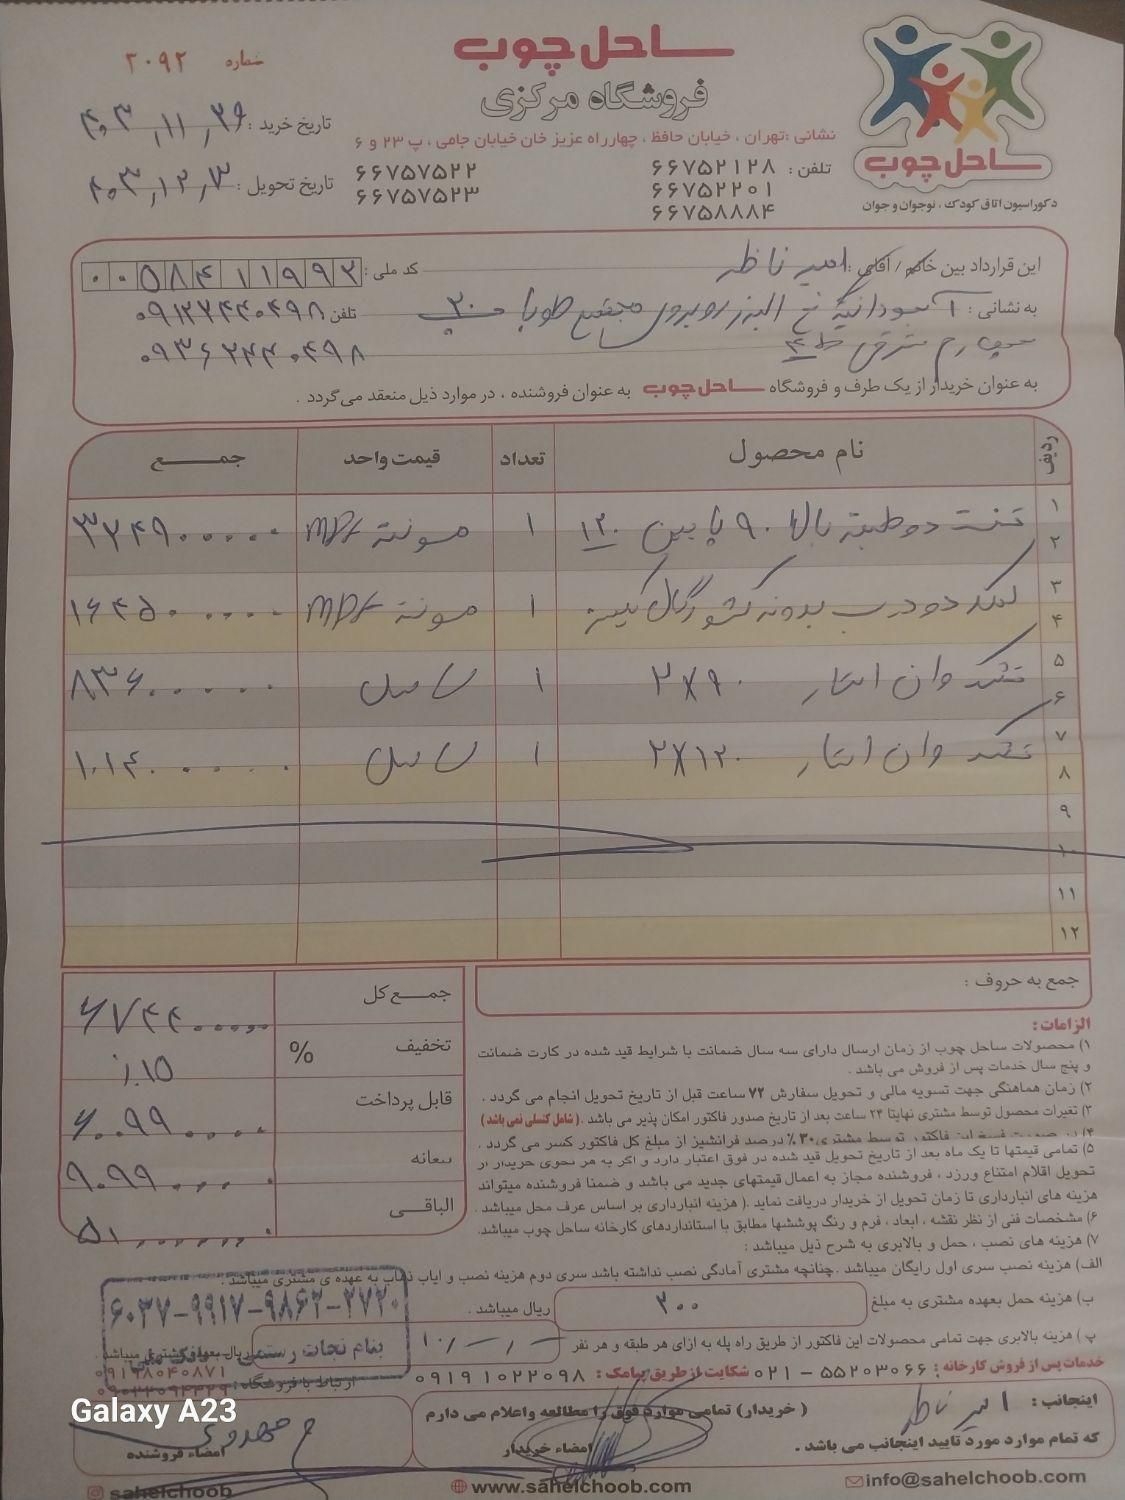 ساحل چوب
فروشگاه مرکزی
نشانی :تهران ، خیابان حافظ ، چهارراه عزیز خان خیابان جامی ، پ ۲۳ و ۶
تلفن : ۶۶۷۵۲۱۲۸ ۶۶۷۵۷۵۲۲
۶۶۷۵۲۲۰۱ ۶۶۷۵۷۵۲۳
۶۶۷۵۸۸۸۴
شماره ۲۰۹۲
تاریخ خرید : ۴۰۳,۱۱,۲۶
تاریخ تحویل : ۴۰۳,۱۲,۳
ساحل چوب
دکوراسیون اتاق کودک ، نوجوان و جوان
این قرارداد بین خانم / آقای : امیر ناظر کد ملی : ۰۰۵۸۴۱۱۹۹۳
به نشانی : البرز روبروی مجتمع طوبا پ ۲۰ تلفن ۰۹۱۲۲۴۴۰۴۹۸
شرقی ط ۴ ۰۹۳۶۲۴۴۰۴۹۸
به عنوان خریدار از یک طرف و فروشگاه ساحل چوب به عنوان فروشنده ، در موارد ذیل منعقد می گردد .
ردیف نام محصول تعداد قیمت واحد جمـــع
۱ تخت دو طبقه بالا ۹۰ پایین ۱۲۰ ۱ MDF ۳۲۴۹۰۰۰۰۰۰
۲
۳ کمد دو درب بدون کشو رگال ۱ MDF ۱۶۴۵۰۰۰۰۰۰
۴
۵ تشک وان استار ۲X۹۰ ۱ ساحل ۸۳۶۰۰۰۰۰۰
۶
۷ تشک وان استار ۲X۱۲۰ ۱ ساحل ۱۰۱۴۰۰۰۰۰۰
۸
۹
۱۰
۱۱
۱۲
جمع به حروف :
جمـــع کل ۶۷۴۴۰۰۰۰۰۰
تخفیف % ٪۱۵
قابل پرداخت ۶۰۹۹۰۰۰۰۰
بیعانه ۹۰۹۹۰۰۰۰
الباقــی ۵۱۰۰۰۰۰۰۰
الزامات :
۱) محصولات ساحل چوب از زمان ارسال دارای سه سال ضمانت با شرایط قید شده در کارت ضمانت
و پنج سال خدمات پس از فروش می باشد .
۲) زمان هماهنگی جهت تسویه مالی و تحویل سفارش ۷۲ ساعت قبل از تاریخ تحویل انجام می گردد .
۳) تغیرات محصول توسط مشتری نهایتا ۲۴ ساعت بعد از تاریخ صدور فاکتور امکان پذیر می باشد .(شامل کنسلی نمی باشد)
۴) در صورت فسخ این فاکتور توسط مشتری ۳۰٪ درصد فرانشیز از مبلغ کل فاکتور کسر می گردد .
۵) تمامی قیمتها تا یک ماه بعد از تاریخ تحویل قید شده در فوق اعتبار دارد و اگر به هر نحوی خریدار از
تحویل اقلام امتناع ورزد ، فروشنده مجاز به اعمال قیمتهای جدید می باشد و ضمنا فروشنده میتواند
هزینه های انبارداری تا زمان تحویل از خریدار دریافت نماید .( هزینه انبارداری بر اساس عرف محل میباشد .
۶) مشخصات فنی از نظر نقشه ، ابعاد ، فرم و رنگ پوششها مطابق با استانداردهای کارخانه ساحل چوب میباشد.
۷) هزینه های نصب ، حمل و بالابری به شرح ذیل میباشد :
الف) هزینه نصب سری اول رایگان میباشد .چنانچه مشتری آمادگی نصب نداشته باشد سری دوم هزینه نصب و ایاب ذهاب به عهده ی مشتری میباشد .
ب) هزینه حمل بعهده مشتری به مبلغ ۳۰۰ ریال میباشد .
پ ) هزینه بالابری جهت تمامی محصولات این فاکتور از طریق راه پله به ازای هر طبقه و هر نفر ریال بعهده مشتری میباشد .
۶۰۳۷-۹۹۱۷-۹۸۶۲-۲۷۲۰
بنام نجات رستمی - بانک ملی
خدمات پس از فروش کارخانه : ۵۵۲۰۳۰۶۶ - ۰۲۱ شکایت از طریق پیامک : ۰۹۱۹۱۰۲۲۰۹۸ ارتباط با فروشگاه : ۰۹۱۹۸۰۴۰۸۷۱
اینجانب : امیر ناظر ( خریدار) تمامی موارد فوق را مطالعه واعلام می دارم
که تمام موارد مورد تایید اینجانب می باشد . امضاء خریدار امضاء فروشنده
م مهدوی
Galaxy A23
info@sahelchoob.com www.sahelchoob.com sahelchoob